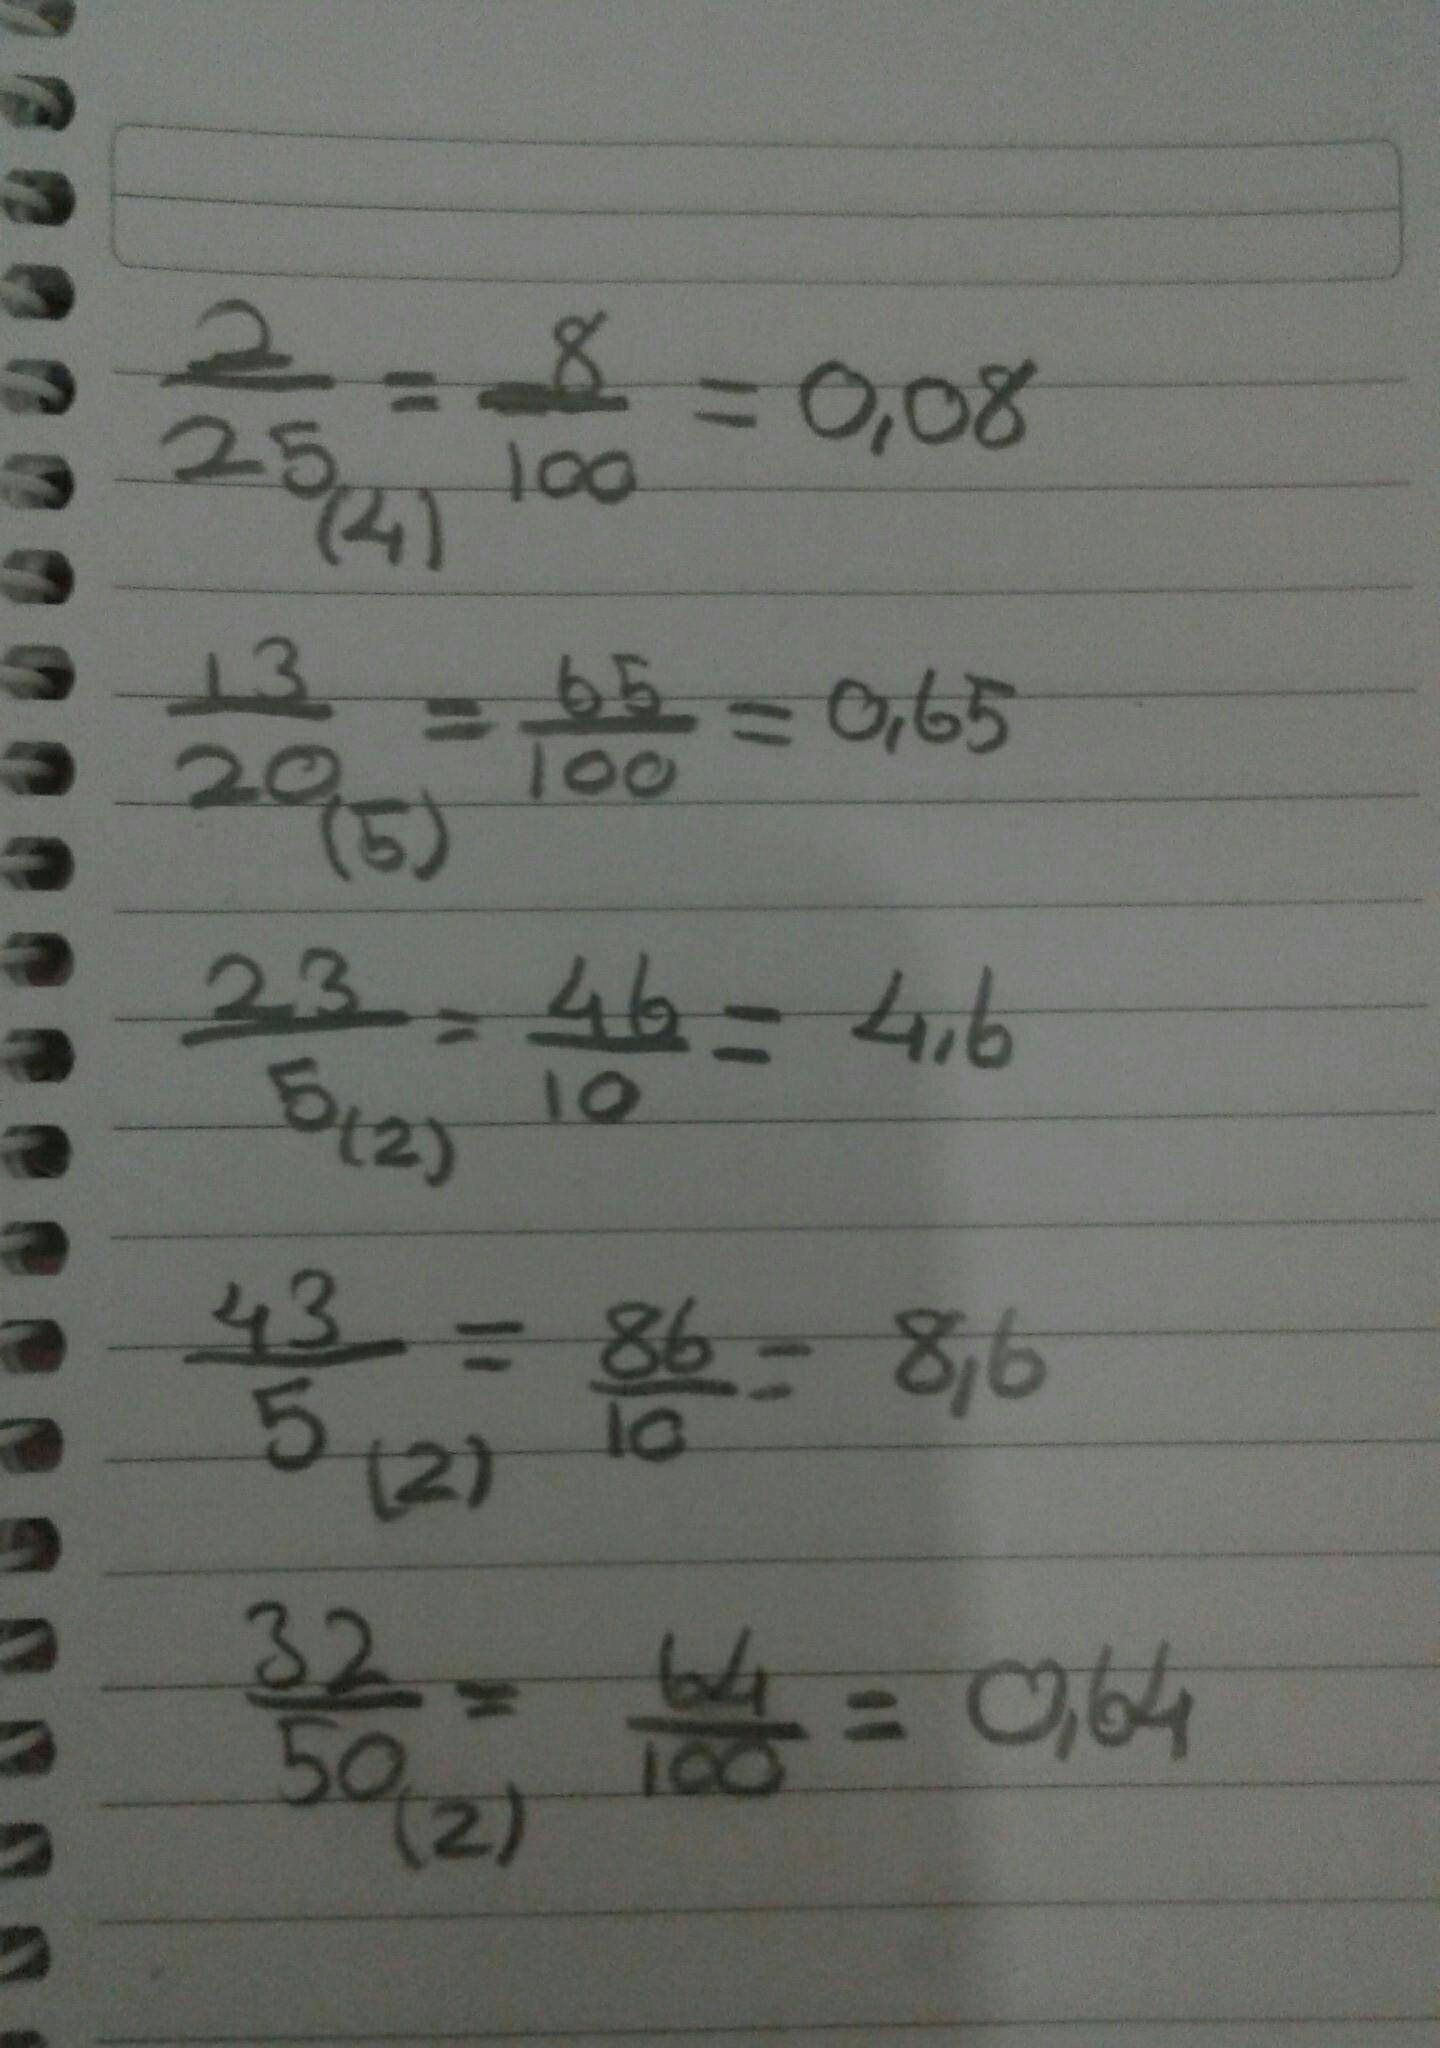 2/25 (4) = 8/100 = 0,08
13/20 (5) = 65/100 = 0,65
23/5 (2) = 46/10 = 4,6
43/5 (2) = 86/10 = 8,6
32/50 (2) = 64/100 = 0,64